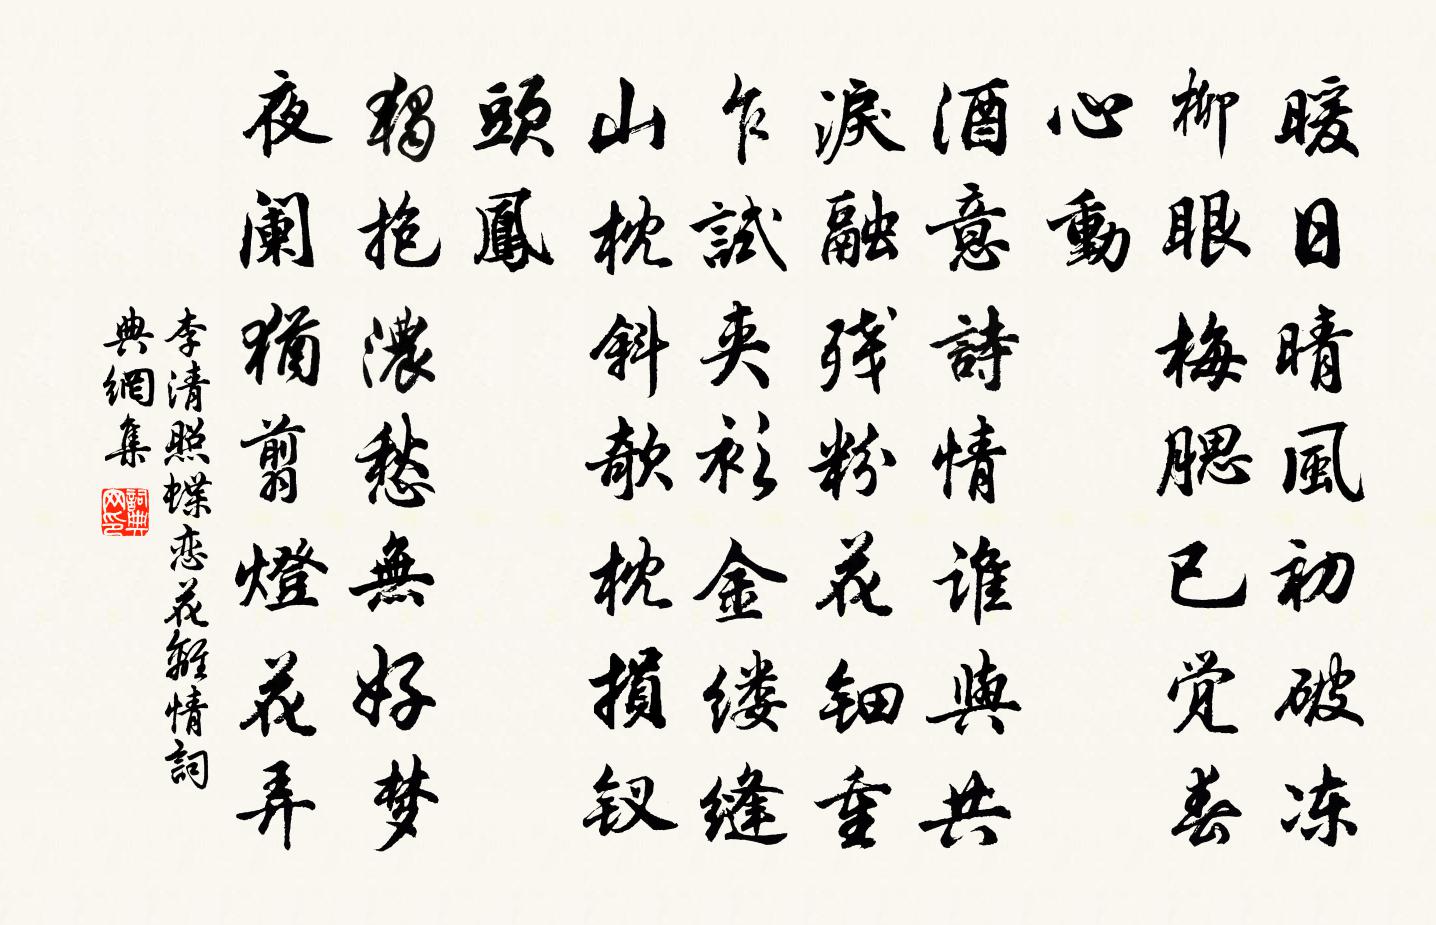 暖日晴風初破冻
柳眼梅腮已覚春
心動
酒意詩情谁與共
淚融残粉花钿重
乍試夹衫金缕缝
山枕斜欹枕損钗
頭鳳
獨抱濃愁無好梦
夜阑猶剪燈花弄
李清照蝶恋花離情詞
典網集
詞典网印